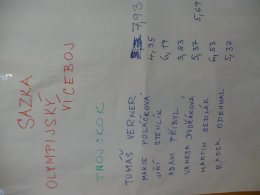 SAZKA
OLYMPIJSKÝ
VÍCEBOJ
TROJSKOK
TOMÁŠ VERNER 7,93
MARIE POLÁČKOVÁ 4,35
JIŘÍ STEHLÍK 6,19
ADAM TŘIBYL 3,83
VANESA DVOŘÁKOVÁ 5,37
MARTIN SEDLÁK 6,53 5,69
RADEK ODEHNAL 5,37